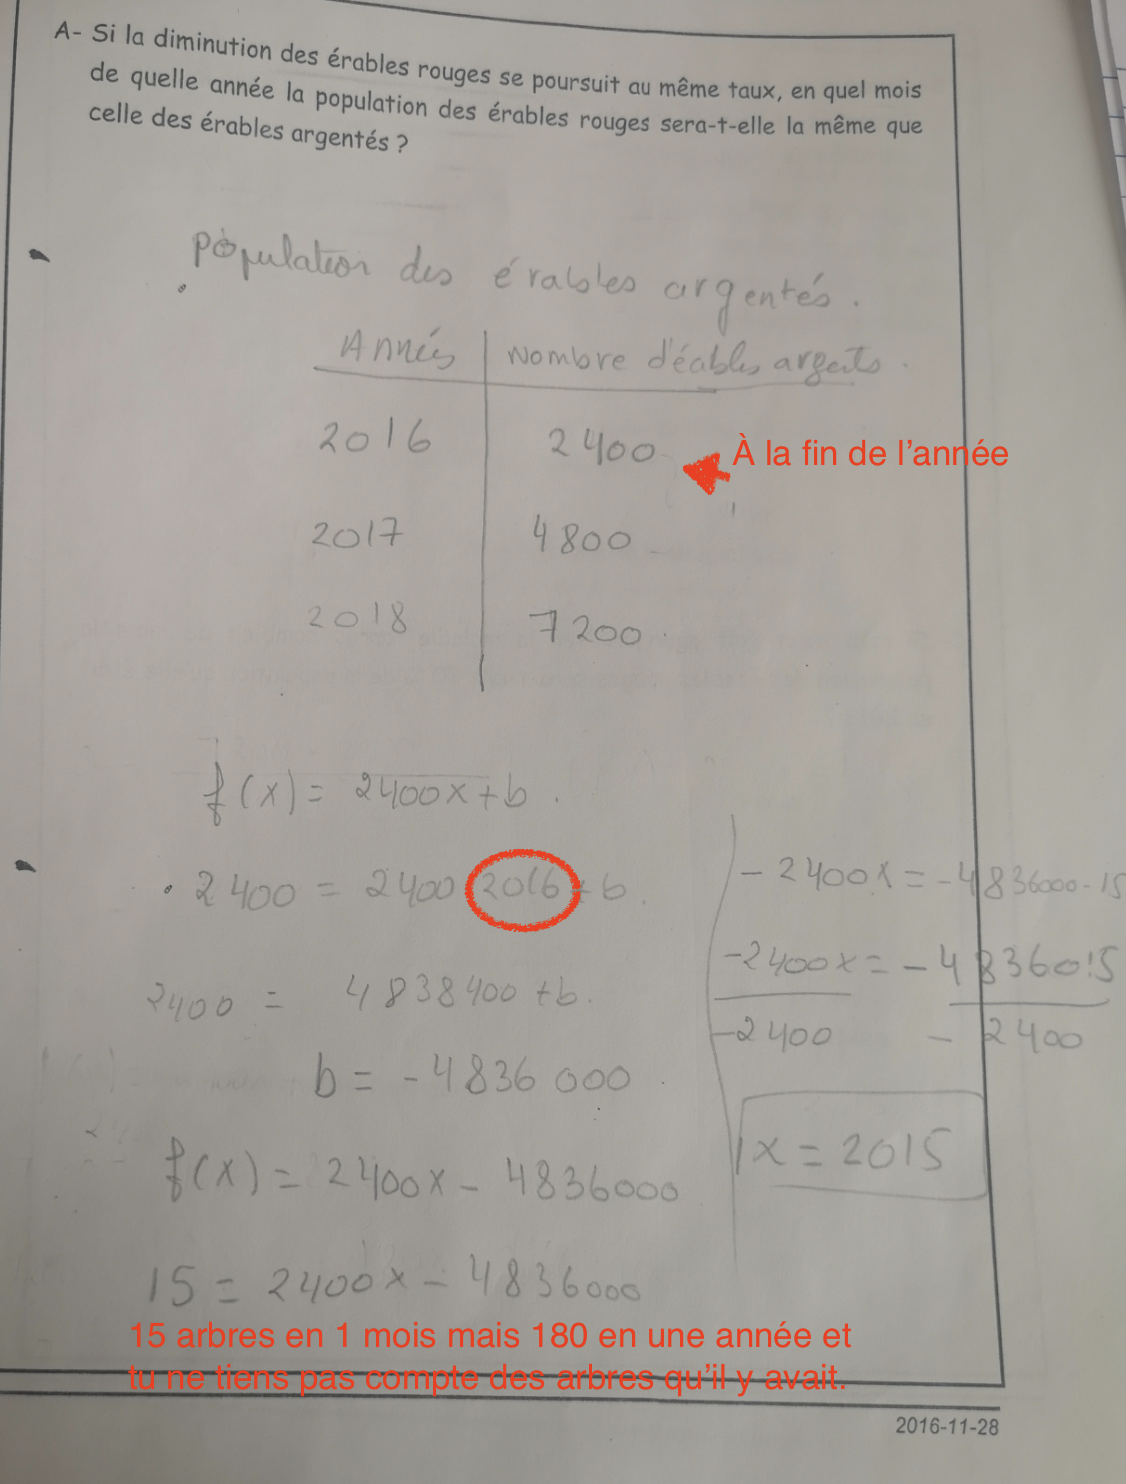 A- Si la diminution des érables rouges se poursuit au même taux, en quel mois
de quelle année la population des érables rouges sera-t-elle la même que
celle des érables argentés ?
Population des érables argentés.
Années | Nombre d'éables argents.
2016 | 2400
À la fin de l'année
2017 | 4800
2018 | 7200
f(x) = 2400x + b.
2400 = 2400 2016 + b.
2400 = 4838400 + b.
b = -4836 000
f(x) = 2400x - 4836000
15 = 2400x - 4836000
- 2400x = -4836000 - 15
-2400x = - 4836015
-2400 - 2400
x = 2015
15 arbres en 1 mois mais 180 en une année et
tu ne tiens pas compte des arbres qu'il y avait.
2016-11-28